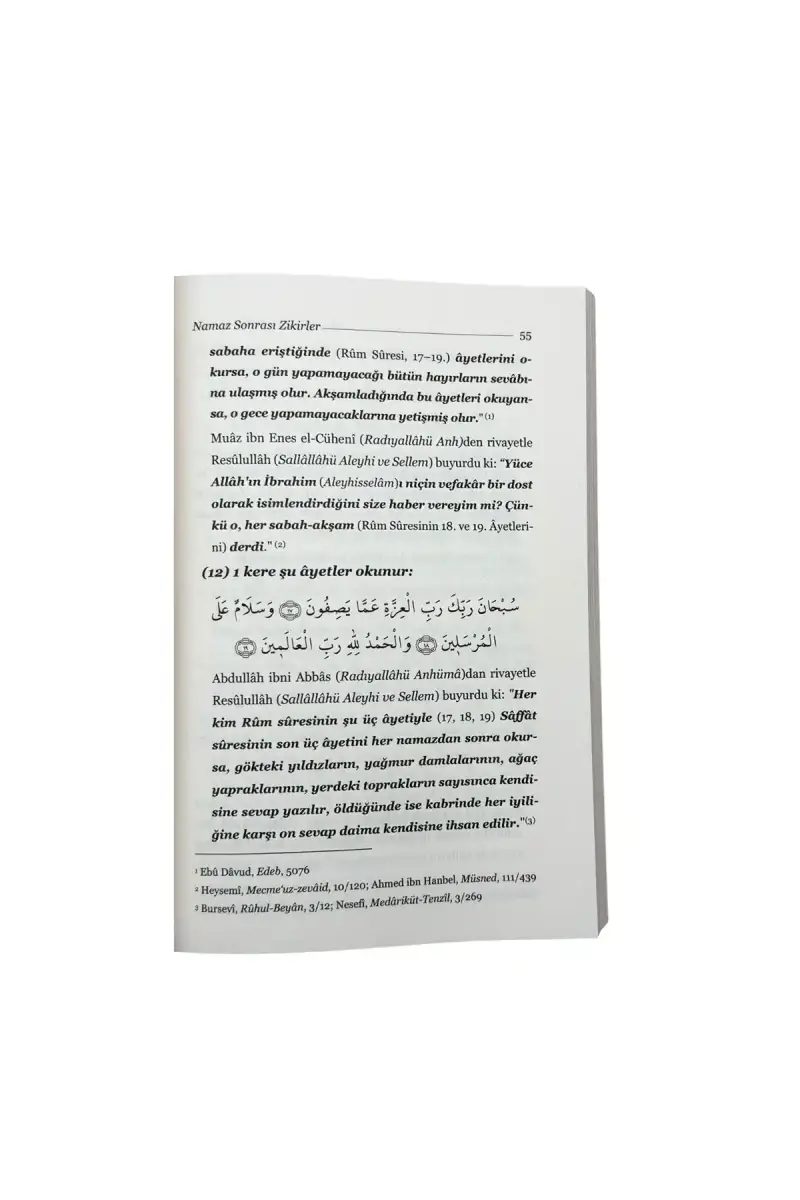 Namaz Sonrası Zikirler 55
sabaha eriştiğinde (Rûm Sûresi, 17–19.) âyetlerini o-
kursa, o gün yapamayacağı bütün hayırların sevâbı-
na ulaşmış olur. Akşamladığında bu âyetleri okuyan-
sa, o gece yapamayacaklarına yetişmiş olur." (1)
Muâz ibn Enes el-Cühenî (Radıyallâhü Anh)den rivayetle
Resûlullâh (Sallâllâhü Aleyhi ve Sellem) buyurdu ki: "Yüce
Allâh'ın İbrahim (Aleyhisselâm)ı niçin vefakâr bir dost
olarak isimlendirdiğini size haber vereyim mi? Çün-
kü o, her sabah-akşam (Rûm Sûresinin 18. ve 19. Âyetleri-
ni) derdi." (2)
(12) 1 kere şu âyetler okunur:
سُبْحَانَ رَبِّكَ رَبِّ الْعِزَّةِ عَمَّا يَصِفُونَ ﴿١٧﴾ وَسَلَامٌ عَلَى
الْمُرْسَلِينَ ﴿١٨﴾ وَالْحَمْدُ لِلّٰهِ رَبِّ الْعَالَمِينَ ﴿١٩﴾
Abdullâh ibni Abbâs (Radıyallâhü Anhümâ)dan rivayetle
Resûlullâh (Sallâllâhü Aleyhi ve Sellem) buyurdu ki: "Her
kim Rûm sûresinin şu üç âyetiyle (17, 18, 19) Sâffât
sûresinin son üç âyetini her namazdan sonra okur-
sa, gökteki yıldızların, yağmur damlalarının, ağaç
yapraklarının, yerdeki toprakların sayısınca kendi-
sine sevap yazılır, öldüğünde ise kabrinde her iyili-
ğine karşı on sevap daima kendisine ihsan edilir."(3)
1 Ebû Dâvud, Edeb, 5076
2 Heysemî, Mecme'uz-zevâid, 10/120; Ahmed ibn Hanbel, Müsned, 111/439
3 Bursevî, Rûhul-Beyân, 3/12; Nesefî, Medâriküt-Tenzîl, 3/269